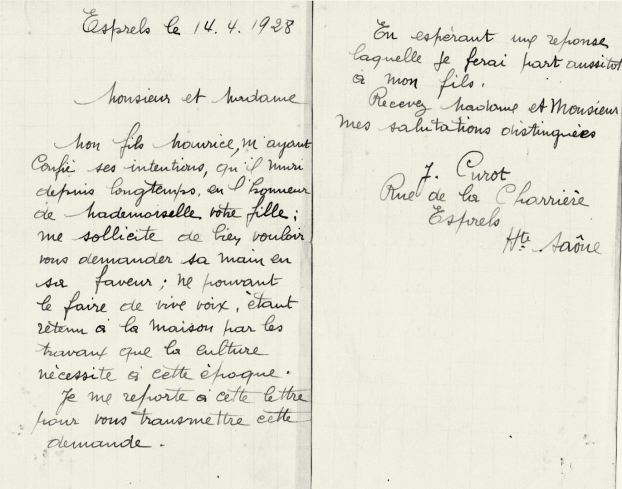 Esprels le 14.4.1928
Monsieur et Madame
Mon fils Maurice, m'ayant
Confié ses intentions, qu'il muri
depuis longtemps, en l'honneur
de Mademoiselle votre fille ;
me sollicite de bien vouloir
vous demander sa main en
sa faveur ; ne pouvant
le faire de vive voix, étant
retenu à la maison par les
travaux que la culture
nécessite à cette époque.
Je me reporte à cette lettre
pour vous transmettre cette
demande.
En espérant une reponse
laquelle je ferai part aussitot
à mon fils.
Recevez Madame et Monsieur
mes salutations distinguées
J. Curot
Rue de la Charrière
Esprels
Hte Saône